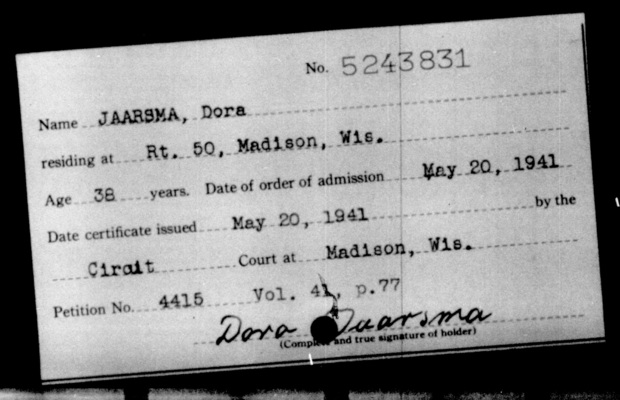 No. 5243831
Name JAARSMA, Dora
residing at Rt. 50, Madison, Wis.
Age 38 years. Date of order of admission May 20, 1941
Date certificate issued May 20, 1941 by the
Ciruit Court at Madison, Wis.
Petition No. 4415 Vol. 41, p.77
Dora Jaarsma
(Complete and true signature of holder)